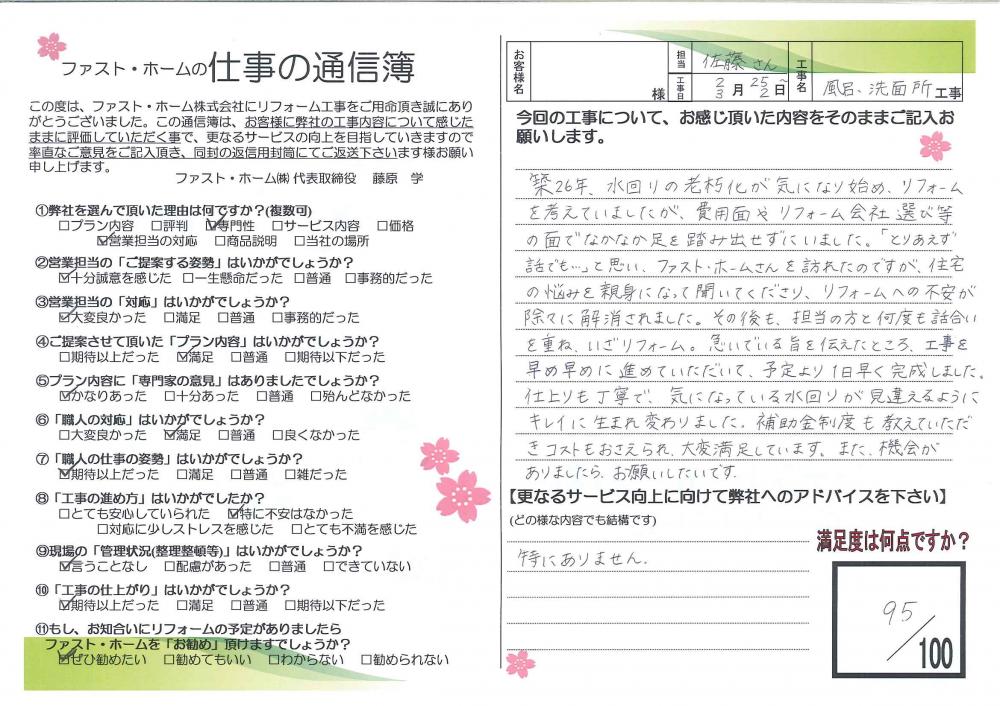 ファスト・ホームの仕事の通信簿
この度は、ファスト・ホーム株式会社にリフォーム工事をご用命頂き誠にあり
がとうございました。この通信簿は、お客様に弊社の工事内容について感じた
ままに評価していただく事で、更なるサービスの向上を目指していきますので
率直なご意見をご記入頂き、同封の返信用封筒にてご返送下さいます様お願い
申し上げます。
ファスト・ホーム㈱ 代表取締役 藤原 学
①弊社を選んで頂いた理由は何ですか?(複数可)
□プラン内容 □評判 ☑専門性 □サービス内容 □価格
☑営業担当の対応 □商品説明 □当社の場所
②営業担当の「ご提案する姿勢」はいかがでしょうか?
☑十分誠意を感じた □一生懸命だった □普通 □事務的だった
③営業担当の「対応」はいかがでしょうか?
☑大変良かった □満足 □普通 □事務的だった
④ご提案させて頂いた「プラン内容」はいかがでしょうか?
□期待以上だった ☑満足 □普通 □期待以下だった
⑤プラン内容に「専門家の意見」はありましたでしょうか?
☑かなりあった □十分あった □普通 □殆んどなかった
⑥「職人の対応」はいかがでしょうか?
□大変良かった ☑満足 □普通 □良くなかった
⑦「職人の仕事の姿勢」はいかがでしょうか?
☑期待以上だった □満足 □普通 □雑だった
⑧「工事の進め方」はいかがでしたか?
□とても安心していられた ☑特に不安はなかった
□対応に少しストレスを感じた □とても不満を感じた
⑨現場の「管理状況(整理整頓等)」はいかがでしょうか?
☑言うことなし □配慮があった □普通 □できていない
⑩「工事の仕上がり」はいかがでしょうか?
☑期待以上だった □満足 □普通 □期待以下だった
⑪もし、お知合いにリフォームの予定がありましたら
ファスト・ホームを「お勧め」頂けますでしょうか?
☑ぜひ勧めたい □勧めてもいい □わからない □勧められない
お客様名 様
担当 佐藤さん
工事日 2月25日~
3月2日
工事名 風呂、洗面所工事
今回の工事について、お感じ頂いた内容をそのままご記入お
願いします。
築26年、水回りの老朽化が気になり始め、リフォーム
を考えていましたが、費用面やリフォーム会社選び等
の面でなかなか足を踏み出せずにいました。「とりあえず
話でも…」と思い、ファスト・ホームさんを訪れたのですが、住宅
の悩みを親身になって聞いてくださり、リフォームへの不安が
除々に解消されました。その後も、担当の方と何度も話合い
を重ね、いざリフォーム。急いでいる旨を伝えたところ、工事を
早め早めに進めていただいて、予定より1日早く完成しました。
仕上りも丁寧で、気になっている水回りが見違えるように
キレイに生まれ変わりました。補助金制度も教えていただ
きコストもおさえられ、大変満足しています。また、機会が
ありましたら、お願いしたいです。
【更なるサービス向上に向けて弊社へのアドバイスを下さい】
(どの様な内容でも結構です)
特にありません。
満足度は何点ですか?
95/100